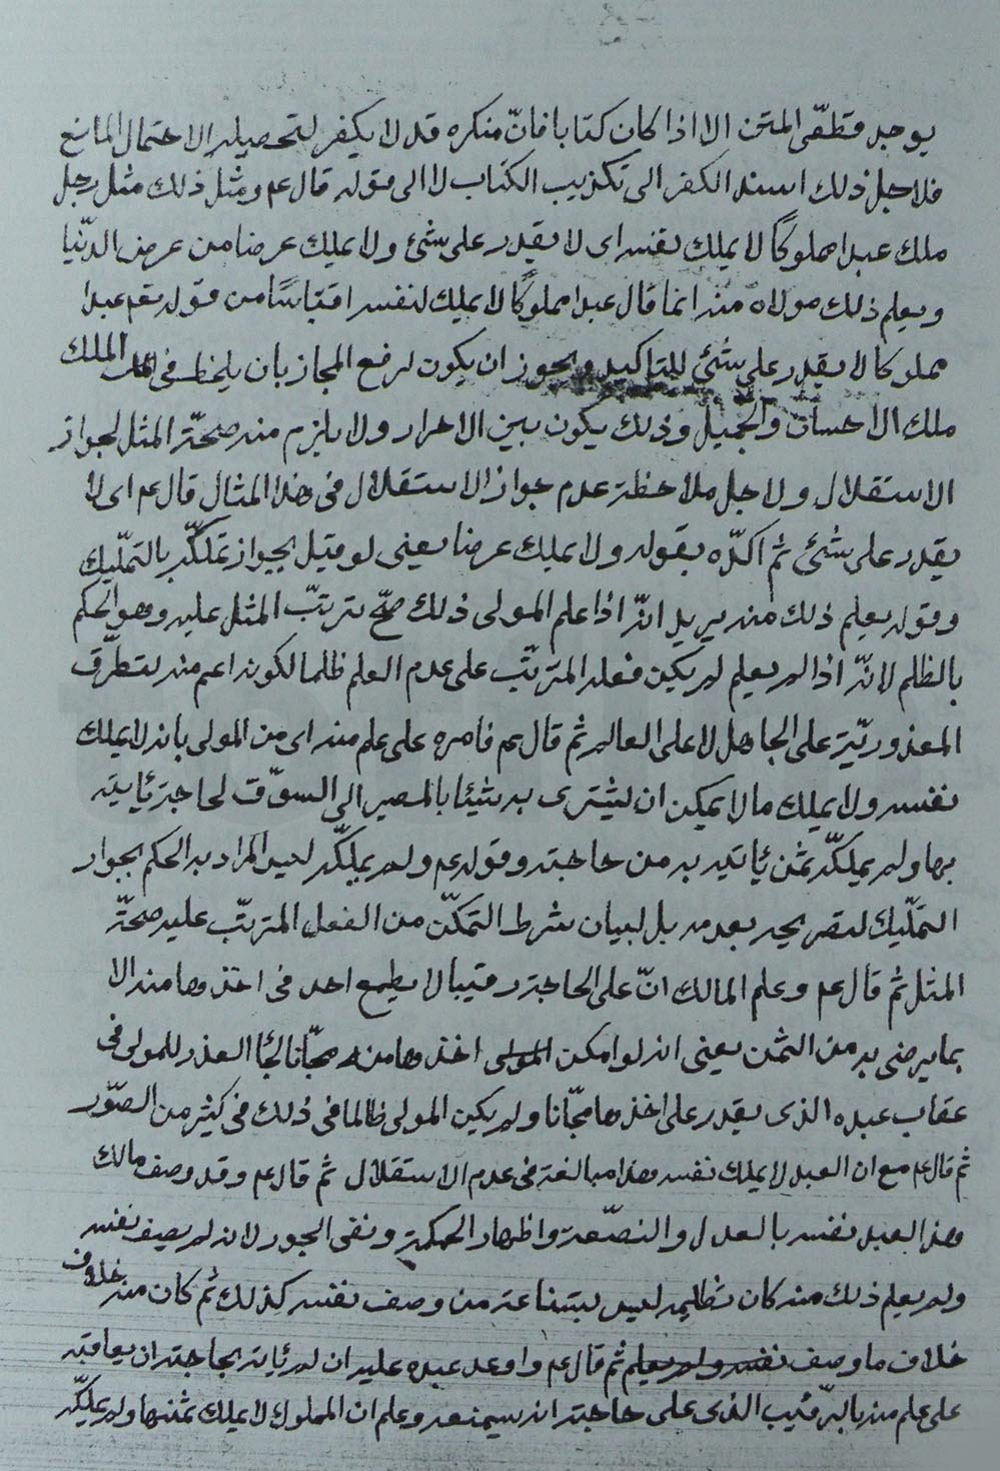 يوجد قطعّى المتن الا اذا كان كتابا فانّ منكره قد لا يكفر لتحصيله الاحتمال المانع
فلاجل ذلك اسند الكفر الى تكذيب الكتاب لا الى قوله قال عم ومثل ذلك مثل رجل
ملك عبدا مملوكاً لا يملك نفسه اى لا يقدر على شئ ولا يملك عرضا من عرض الدّنيا
ويعلم ذلك مولاه منه انما قال عبدا مملوكاً لا يملك لنفسه اقتباسًا من قوله تعم عبدا
مملوكا لا يقدر على شئ للتاكيد ويجوز ان يكون لرفع المجاز بان يلحظ فى الملك
ملك الاحسان والجميل وذلك يكون بين الاحرار ولا يلزم منه صحّة المثل لجواز
الاستقلال ولاجل ملاحظة عدم جواز الاستقلال فى هذا المثال قال عم اى لا
يقدر على شئ ثم اكدّه بقوله ولا يملك عرضا يعنى لو قيل بجواز تملكّه بالتمّليك
وقوله يعلم ذلك منه يريد انّه اذا علم المولى ذلك صحّ ترتبّ المثل عليه وهو الحكم
بالظلم لانّه اذا لم يعلم لم يكن فعله المترتّب على عدم العلم ظلما لكونه اعم منه لتطرّق
المعذوريّة على الجاهل لا على العالم ثم قال عم فامره على علم منه اى من المولى بانه لا يملك
نفسه ولا يملك ما لا يمكن ان يشترى به شيئا بالمصير الى السوّق لحاجة يأتيه
بها ولم يملكّه ثمن يأتيه به من حاجته وقوله عم ولم يملكّه ليس المراد به الحكم بجواز
التمّليك لتصريحه بعدمه بل لبيان شرط التمكّن من الفعل المترتّب عليه صحّة
المثل ثم قال عم وعلم المالك انّ على الحاجة رقيبا لا يطمع احد فى اخذها منه الا
بما يرضى به من الثمن يعنى انه لو امكن المولى اخذها منه مجّانا لجا العذر للمولى فى
عقاب عبده الذى يقدر على اخذها مجّانا ولم يكن المولى ظالما فى ذلك فى كثير من الصّور
ثم قال عم مع ان العبد لا يملك نفسه وهذا مبالغة فى عدم الاستقلال ثم قال عم وقد وصف مالك
هذا العبد نفسه بالعدل والنصّفة واظهار الحكمة ونفى الجور لانه لم يصف نفسه
ولم يعلم ذلك منه كان تظليمه ليس بشناعة من وصف نفسه كذلك ثم كان منه خلاف
خلاف ما وصف نفسه ولم يعلم ثم قال عم واوعد عبده عليه ان لم يأته بحاجته ان يعاقبه
على علم منه بالرّقيب الذى على حاجته انه سيمنعه وعلم ان المملوك لا يملك ثمنها ولم يملكّه